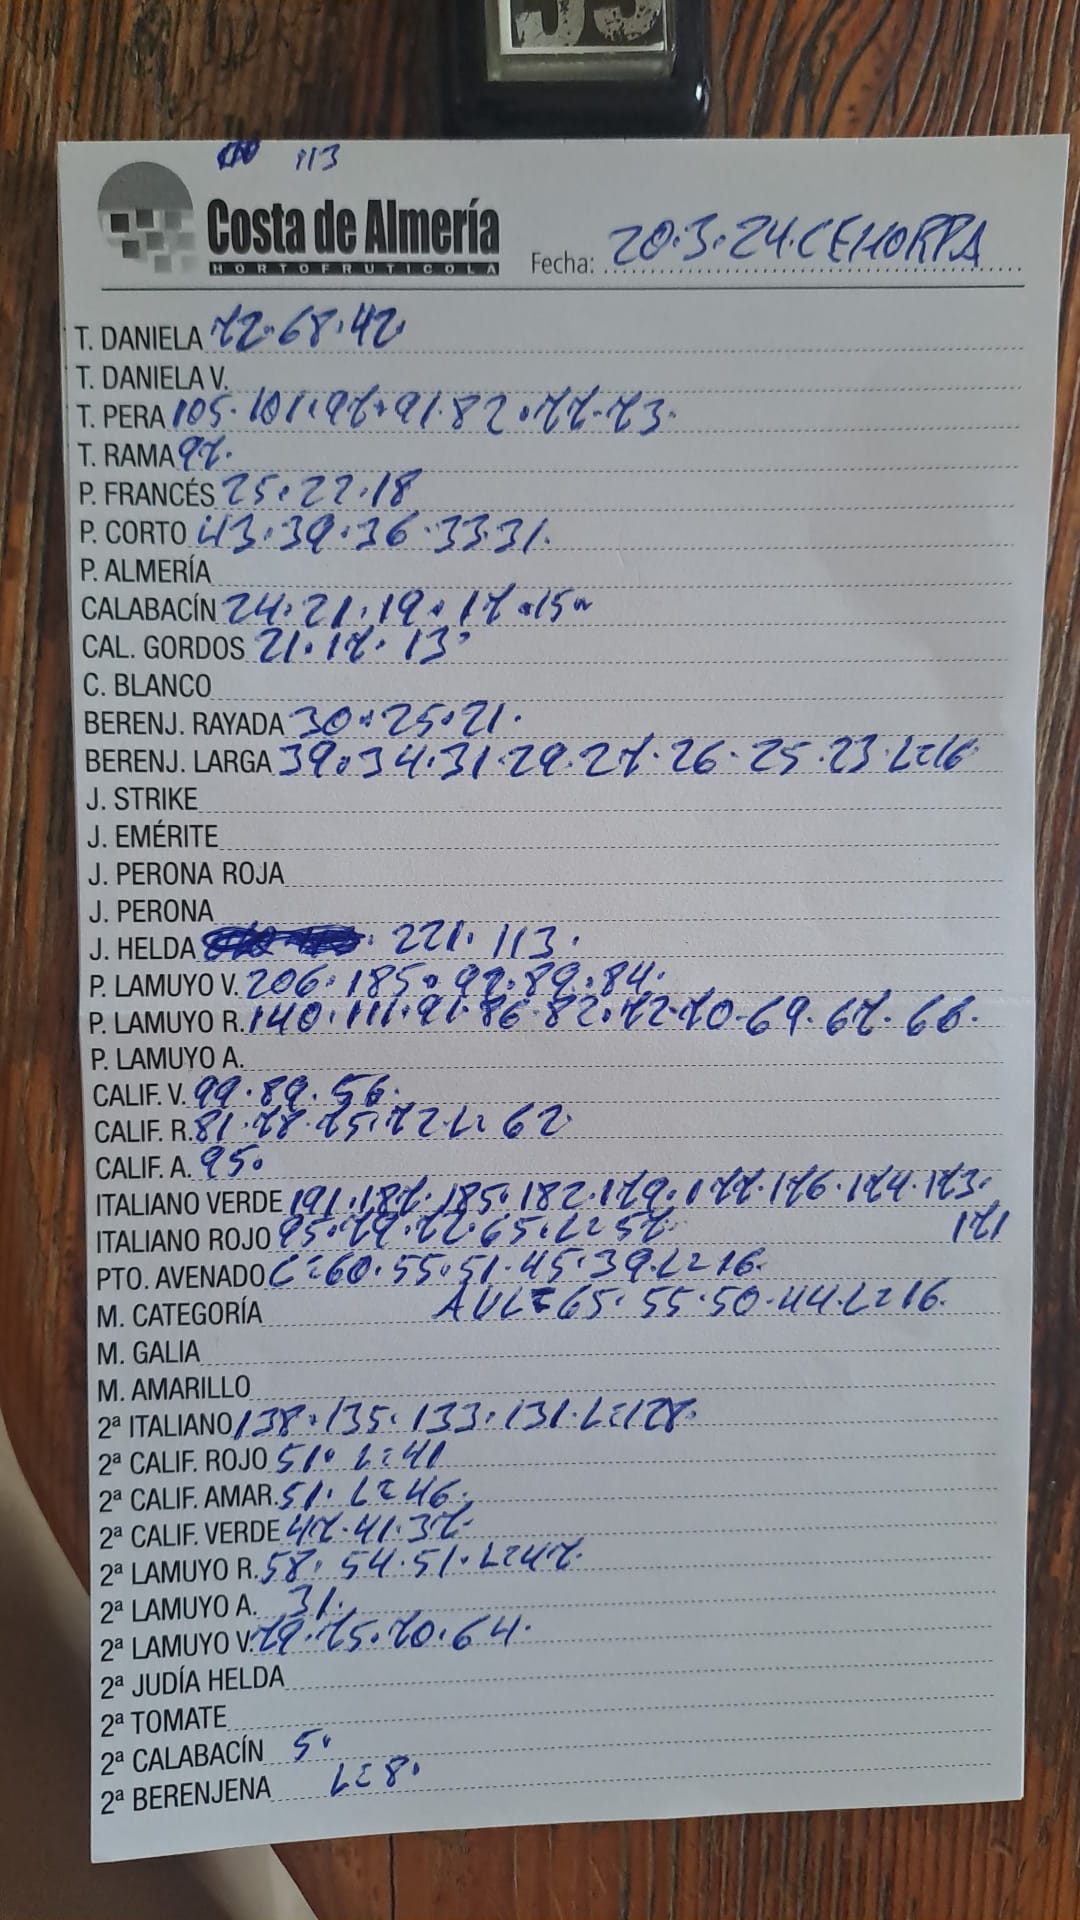 113
Costa de Almería
HORTOFRUTICOLA
Fecha: 20.3.24.CEHORPA
T. DANIELA 72.68.42.
T. DANIELA V.
T. PERA 105.101.97.91.82.77.73.
T. RAMA 97.
P. FRANCÉS 25.22.18
P. CORTO 43.39.36.33.31.
P. ALMERÍA
CALABACÍN 24.21.19.17.15.
CAL. GORDOS 21.17.13.
C. BLANCO
BERENJ. RAYADA 30.25.21.
BERENJ. LARGA 39.34.31.29.27.26.25.23.L=16
J. STRIKE
J. EMÉRITE
J. PERONA ROJA
J. PERONA
J. HELDA 221.113.
P. LAMUYO V. 206.185.97.89.84.
P. LAMUYO R. 140.111.91.86.82.72.70.69.67.66.
P. LAMUYO A.
CALIF. V. 99.89.56.
CALIF. R. 81.78.75.72.L=62.
CALIF. A. 95.
ITALIANO VERDE 191.187.185.182.179.177.176.174.173.
171
ITALIANO ROJO 95.79.72.65.L=57.
PTO. AVENADO C=60.55.51.45.39.L=16.
AVL=65.55.50.44.L=16.
M. CATEGORÍA
M. GALIA
M. AMARILLO
2ª ITALIANO 138.135.133.131.L=128.
2ª CALIF. ROJO 51. L=41
2ª CALIF. AMAR. 51. L=46.
2ª CALIF. VERDE 47.41.37.
2ª LAMUYO R. 58.54.51.L=47.
2ª LAMUYO A. 31.
2ª LAMUYO V. 79.75.70.64.
2ª JUDÍA HELDA
2ª TOMATE
2ª CALABACÍN 5.
2ª BERENJENA L=8.